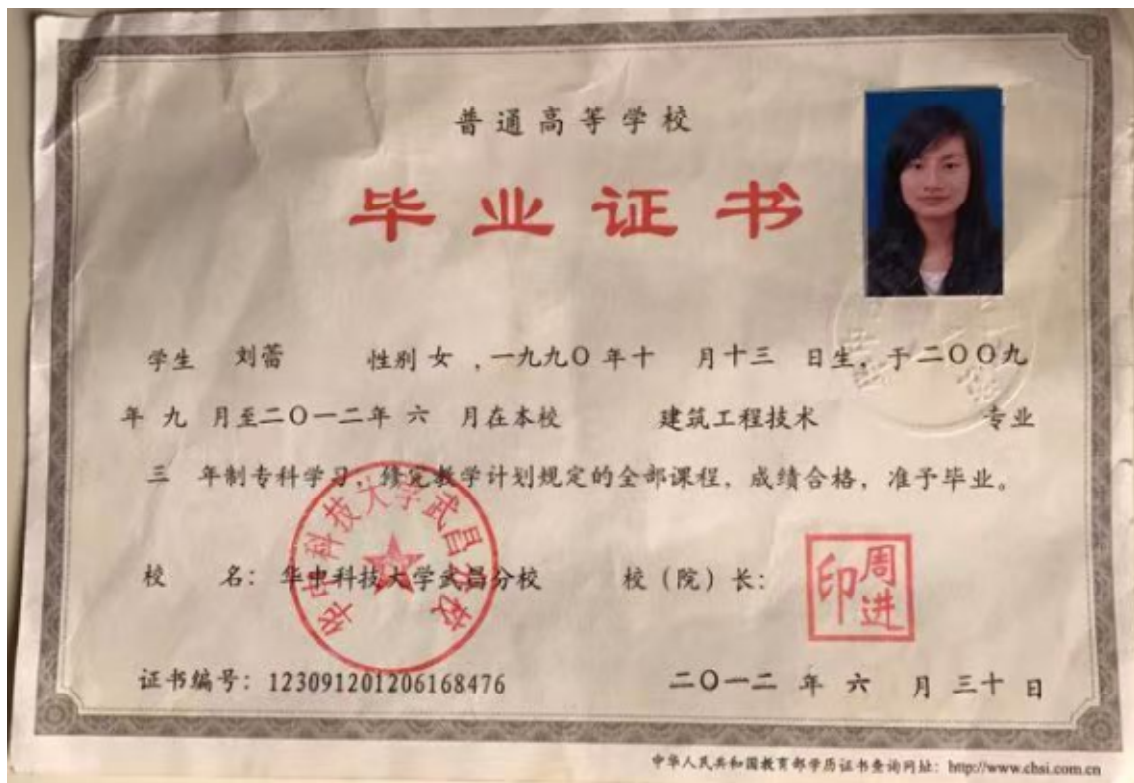 普通高等学校
毕业证书
学生 刘蕾 性别 女 ,一九九〇 年十 月十三 日生,于二〇〇九
年 九 月至二〇一二年 六 月在本校 建筑工程技术 专业
三 年制专科学习,修完教学计划规定的全部课程,成绩合格,准予毕业。
华中科技大学武昌分校
校 名:华中科技大学武昌分校 校(院)长:
周进印
证书编号:123091201206168476 二〇一二 年 六 月 三十 日
中华人民共和国教育部学历证书查询网址:http://www.chsi.com.cn